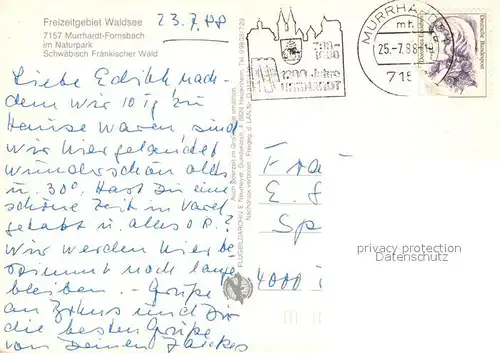 Freizeitgebiet Waldsee
7157 Murrhardt-Fornsbach
im Naturpark
Schwäbisch Fränkischer Wald
23.7.88
Liebe Edith nach-
dem wir 10 Tg zu
Hause waren, sind
wir hier gelandet
wunderschön alles
u. 30°. Hast Du eine
schöne Zeit in Varel
gehabt u. alles O.K.?
Wir werden hier be-
stimmt noch lange
bleiben. - Grüße
an und Dir
die besten Grüße
von Deinen
Auch
FLUGBILDARCHIV
MURRHARDT
25.-7.88-18
715
788-
1988
1200 Jahre
MURRHARDT
Deutsche Bundespost
Frau
E. S
Sp
4000
privacy protection
Datenschutz